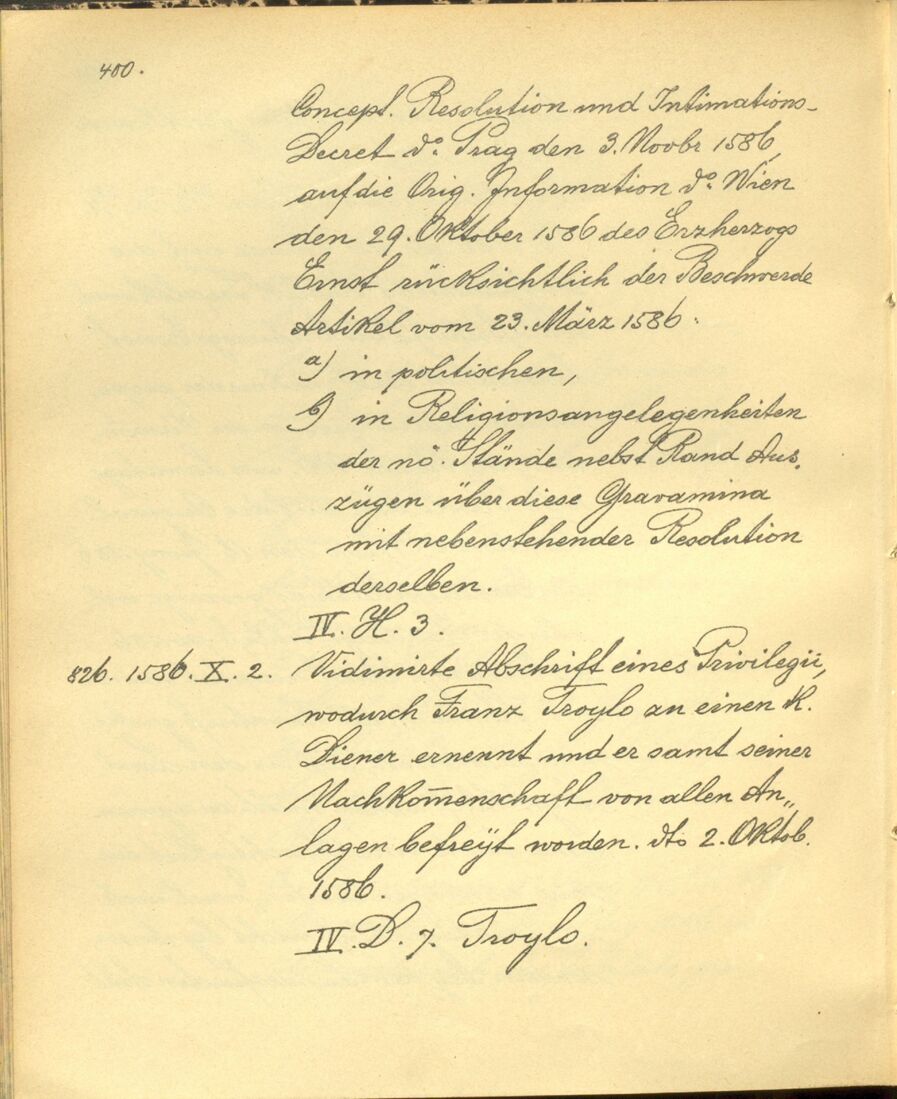 400.
Concept. Resolution und Intimations-
Decret do. Prag den 3. Novbr 1586,
auf die Orig. Information do. Wien
den 29. Oktober 1586 des Erzherzogs
Ernst rücksichtlich der Beschwerde
Artikel vom 23. März 1586.
a) in politischen,
b) in Religionsangelegenheiten
der nö. Stände nebst Rand Aus-
zügen über diese Gravamina
mit nebenstehender Resolution
derselben.
IV. H. 3.
826. 1586. X. 2. Vidimirte Abschrift eines Privilegii,
wodurch Franz Troylo zu einen K.
Diener ernennt und er samt seiner
Nachkom̄enschaft von allen An„
lagen befreÿt worden. dto 2. Oktob.
1586.
IV. D. 7. Troylo.